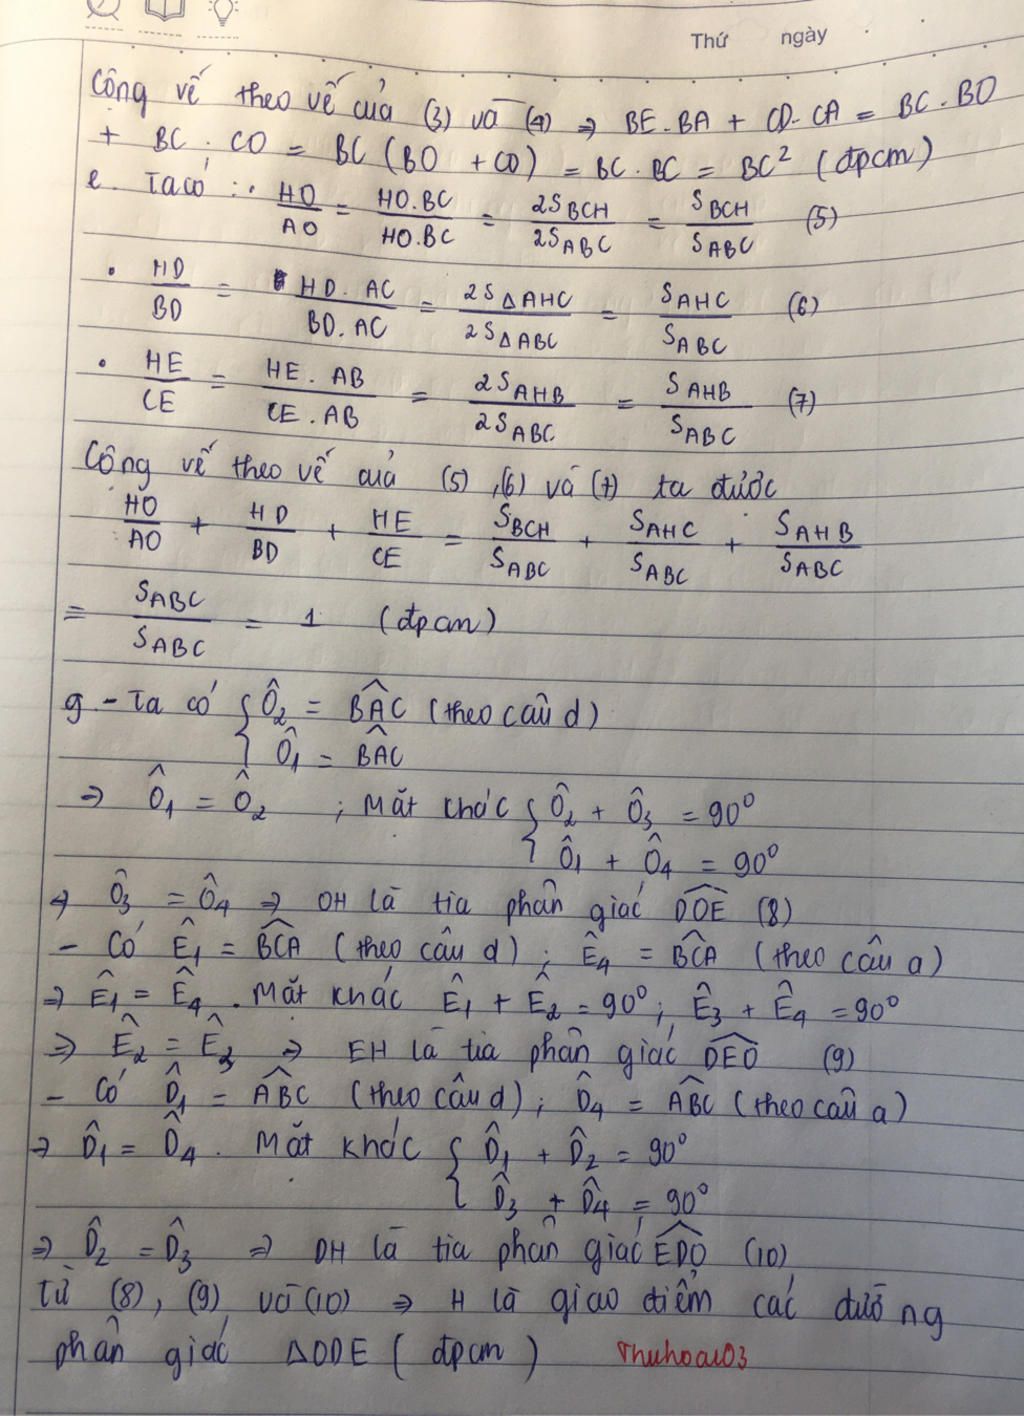 Thứ ngày
Cộng vế theo vế của (3) và (4) ⇒ BE.BA + CD.CA = BC.BO
+ BC.CO = BC(BO + CO) = BC.BC = BC² (đpcm)
e. Ta có: • HO/AO = HO.BC/HO.BC = 2S_BCH/2S_ABC = S_BCH/S_ABC (5)
• HD/BD = HD.AC/BD.AC = 2S_ΔAHC/2S_ΔABC = S_AHC/S_ABC (6)
• HE/CE = HE.AB/CE.AB = 2S_AHB/2S_ABC = S_AHB/S_ABC (7)
Cộng vế theo vế của (5), (6) và (7) ta được
HO/AO + HD/BD + HE/CE = S_BCH/S_ABC + S_AHC/S_ABC + S_AHB/S_ABC
= S_ABC/S_ABC = 1 (đpcm)
g - Ta có { Ô₂ = BÂC (theo câu d)
Ô₁ = BÂC
⇒ Ô₁ = Ô₂ ; Mặt khác { Ô₂ + Ô₃ = 90⁰
Ô₁ + Ô₄ = 90⁰
⇒ Ô₃ = Ô₄ ⇒ OH là tia phân giác DÔE (8)
- Có Ê₁ = BĈA (theo câu d); Ê₄ = BĈA (theo câu a)
⇒ Ê₁ = Ê₄. Mặt khác Ê₁ + Ê₂ = 90⁰; Ê₃ + Ê₄ = 90⁰
⇒ Ê₂ = Ê₃ ⇒ EH là tia phân giác DÊO (9)
- Có D̂₁ = AB̂C (theo câu d); D̂₄ = AB̂C (theo câu a)
⇒ D̂₁ = D̂₄. Mặt khác { D̂₁ + D̂₂ = 90⁰
D̂₃ + D̂₄ = 90⁰
⇒ D̂₂ = D̂₃ ⇒ DH là tia phân giác ED̂O (10)
Từ (8), (9) và (10) ⇒ H là giao điểm các đường
phân giác ΔODE (đpcm) Thuhoai03